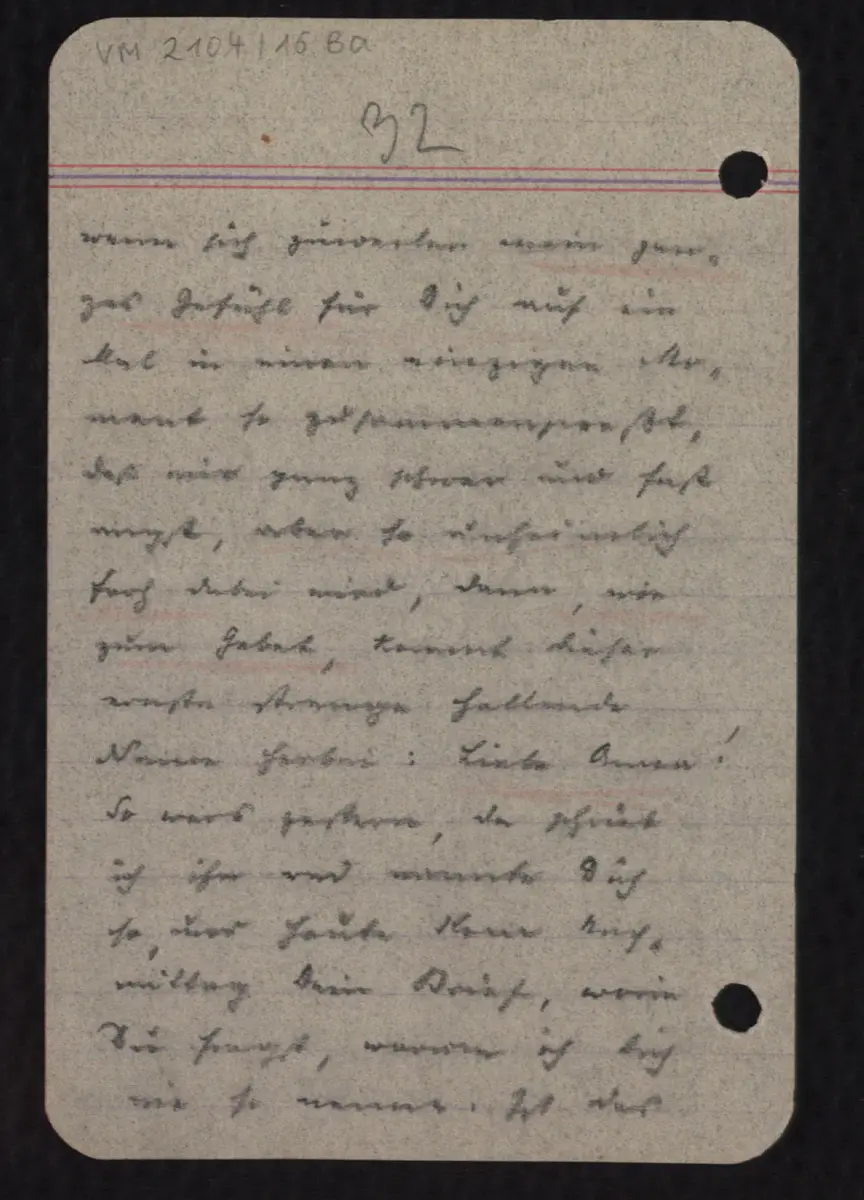 VM 2104/16 Ba
32
wenn sich zuweilen mein gan-
zes Gefühl für Dich auf ein
Mal in einen einzigen Mo-
ment so zusammenpreßt,
daß mir ganz schwer und fast
angst, aber so unheimlich
froh dabei wird, dann, wie
zum Gebet, kommt dieser
ernste strenge hallende
Name herbei: Liebe Anna!
So wars gestern, da schrieb
ich ihn und nannte Dich
so, und heute Nach-
mittag Dein Brief, worin
Du fragst, warum ich Dich
nie so nenne. Ist das